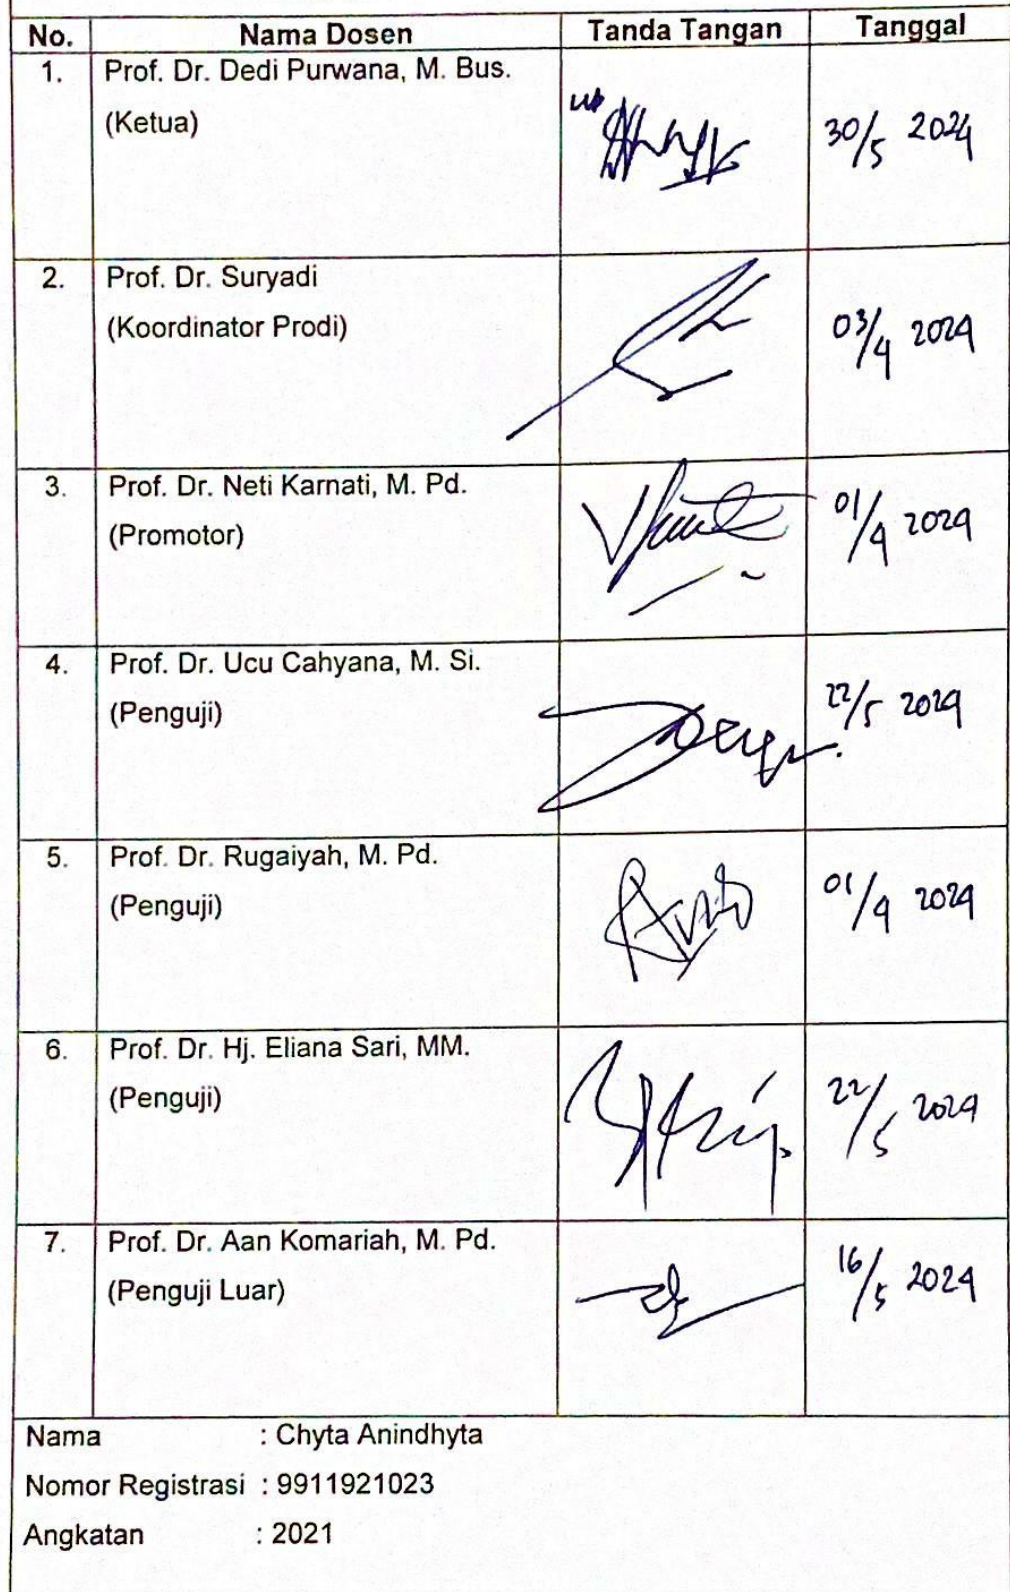 No. Nama Dosen Tanda Tangan Tanggal
1. Prof. Dr. Dedi Purwana, M. Bus.
(Ketua)
30/5 2024
2. Prof. Dr. Suryadi
(Koordinator Prodi)
03/4 2024
3. Prof. Dr. Neti Karnati, M. Pd.
(Promotor)
01/4 2024
4. Prof. Dr. Ucu Cahyana, M. Si.
(Penguji)
22/5 2024
5. Prof. Dr. Rugaiyah, M. Pd.
(Penguji)
01/4 2024
6. Prof. Dr. Hj. Eliana Sari, MM.
(Penguji)
22/5 2024
7. Prof. Dr. Aan Komariah, M. Pd.
(Penguji Luar)
16/5 2024
Nama : Chyta Anindhyta
Nomor Registrasi : 9911921023
Angkatan : 2021